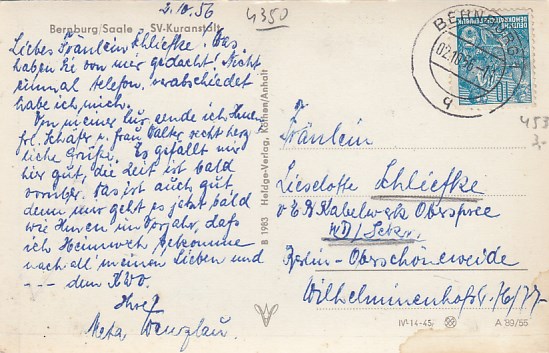 2.10.56
4350
Bernburg/Saale - SV-Kuranstalt
Liebes Fräulein Schliefke! Was
haben Sie von mir gedacht! Nicht
einmal telefon. verabschiedet
habe ich mich.
Von meiner Kur sende ich Ihnen
Frl. Schäfer u. Frau Walter recht herz
liche Grüße. Es gefällt mir
hier gut, die Zeit ist bald
vorüber. Das ist auch gut,
denn mir geht es jetzt bald
wie Ihnen im Vorjahr, daß
ich Heimweh bekomme
nach all' meinen Lieben und
--- dem KWO.
Ihre
Meta Wenzlau.
B 1983 Heldge-Verlag, Köthen/Anhalt
BERNBURG
02.10.56
q
DEUTSCHE
DEMOKRATISCHE REPUBLIK
10
453
3.-
Fräulein
Lieselotte Schliefke
VEB Kabelwerk Oberspree
Berlin-Oberschöneweide
Wilhelminenhofstr. 76/77
IV-14-45
A 89/55